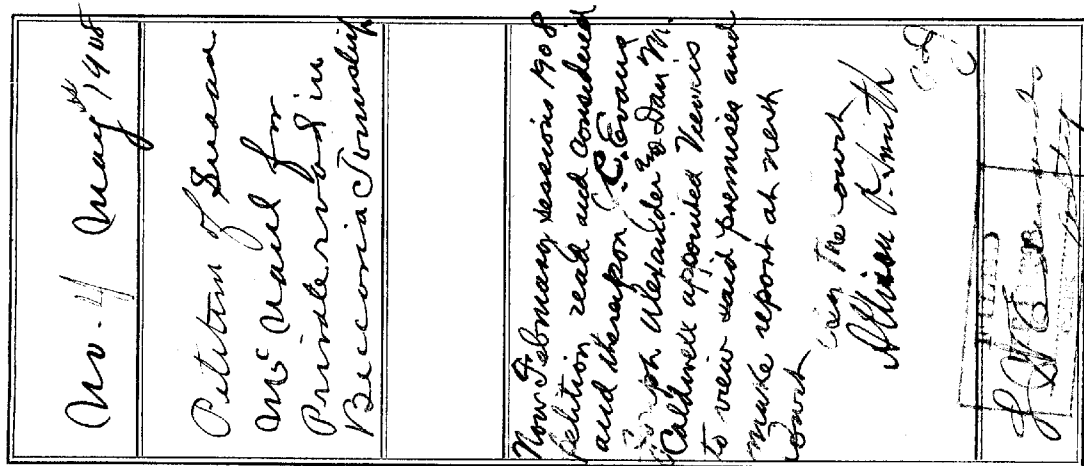 No. 4 May 1908
Petition of Susan
McVail for
Private road in
Beccaria Township
Now February sessions 1908
Petition read and considered
and thereupon C. Evans
Joseph Alexander and Dan M.
Caldwell appointed Viewers
to view said premises and
make report at next
court
The court
Allison O. Smith
P.J.
FILED